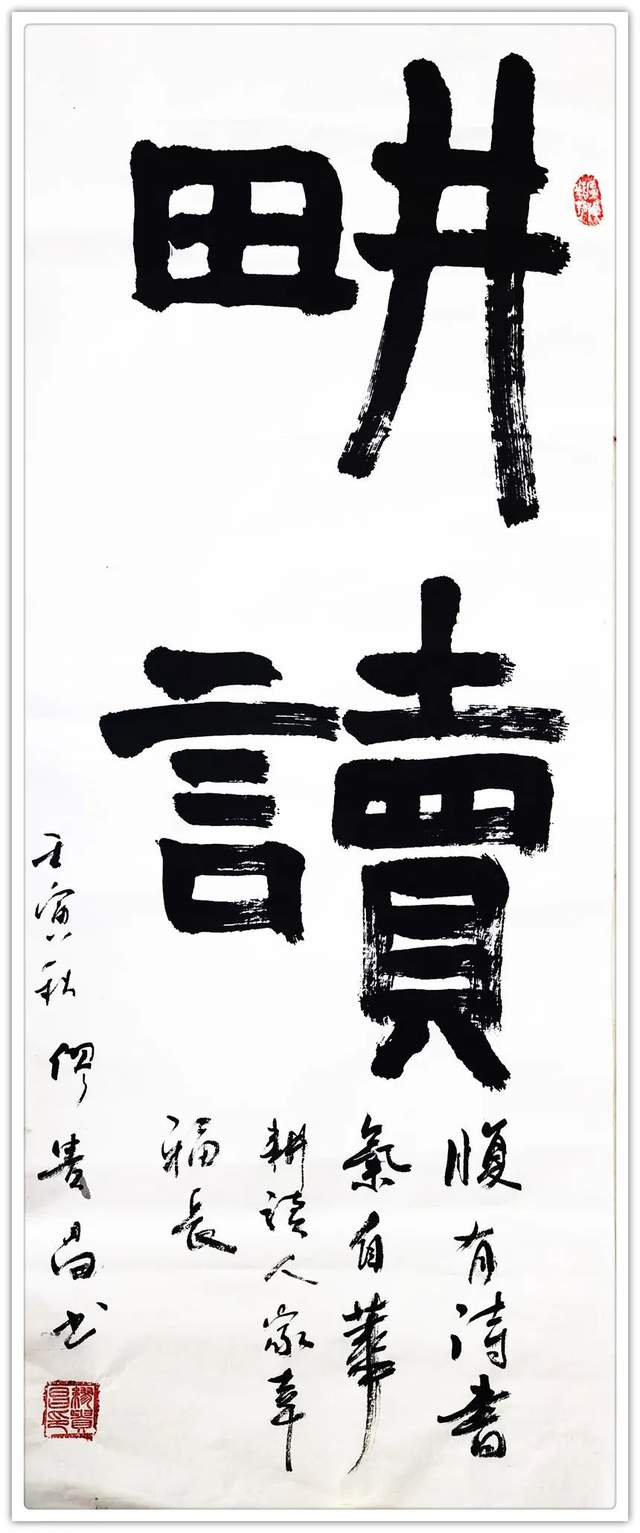 畊讀
腹有詩書
氣自華
耕讀人家幸
福長
壬寅秋
貴昌书